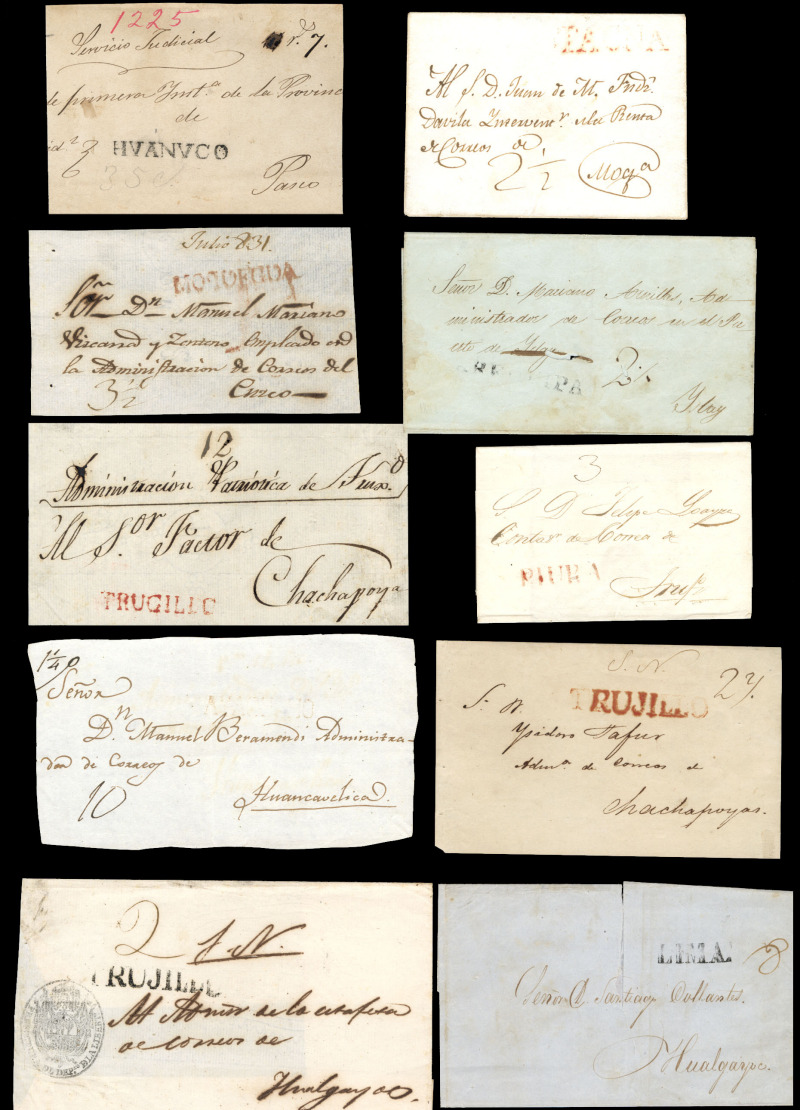 1225
Servicio Judicial
7.
de primera Inst.ª de la Provinc
de
HVANVCO
Pasco
TACNA
Al S. D. Juan de M. Fndz.
Davila Intervent.r de la Renta
de Correos de
2 1/2
Moq.a
Julio 831.
MOQUEGUA
Sor Dn Manuel Mariano
Viscarra y Zenteno Empleado en
la Administracion de Correos del
3 1/2
Cuzco
Señor D. Mariano Ad
ministrador de Correos en el Pu
erto de
AREQUIPA
2
Yslay
12
Administración de
Al S.or Factor de
Chachapoya
TRUGILLO
3
S D Felipe
Contor de Correos de
PIURA
Truj.o
1 1/4 o
Señor
D.n Manuel Beramendi Administra-
dor de Correos de
10
Huancavelica.
S. N.
2
TRUJILLO
S.r D.
Ysidoro Tafur
Adm.or de Correos de
Chachapoyas.
2 S. N.
TRUJILLO
Al Admor de la estafeta
de Correos de
Hualgayoc.
LIMA.
8
Señor D. Santiago Collantes.
Hualgayoc.